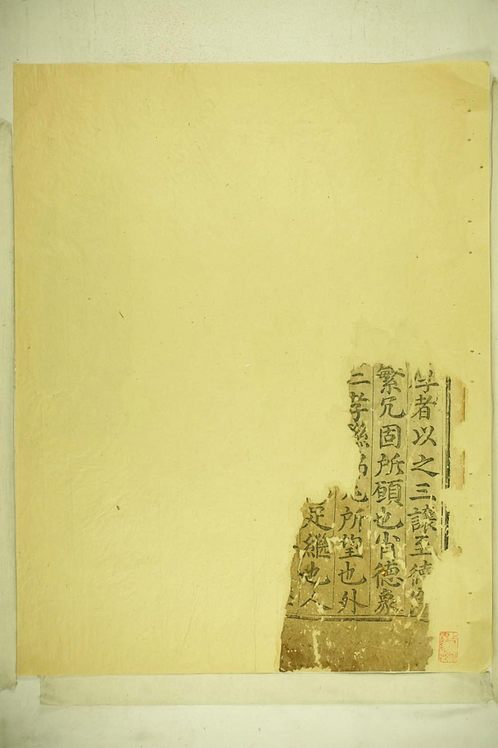 者以之三讓至德
繁冗固所願也肖德象
二字孫所望也外
足繼也人